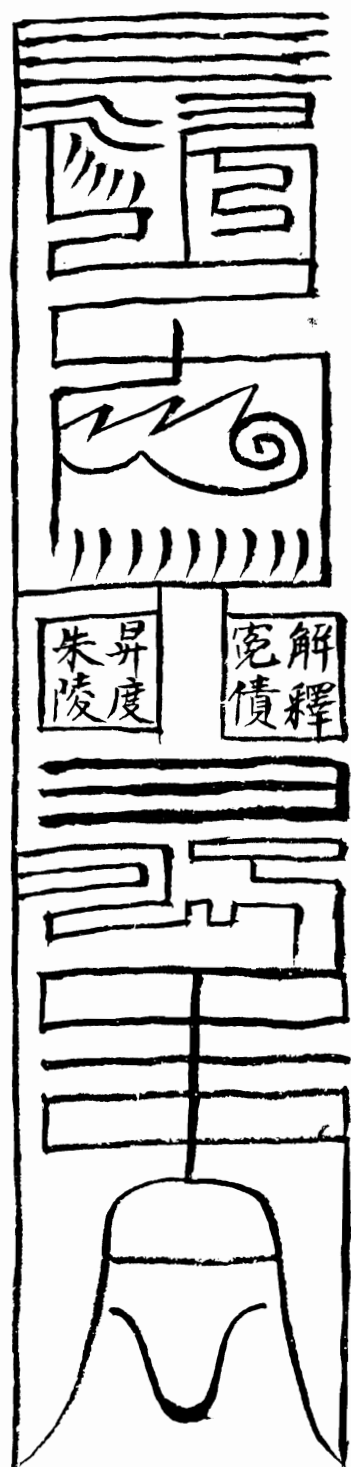 解釋
冤債
昇度
朱陵